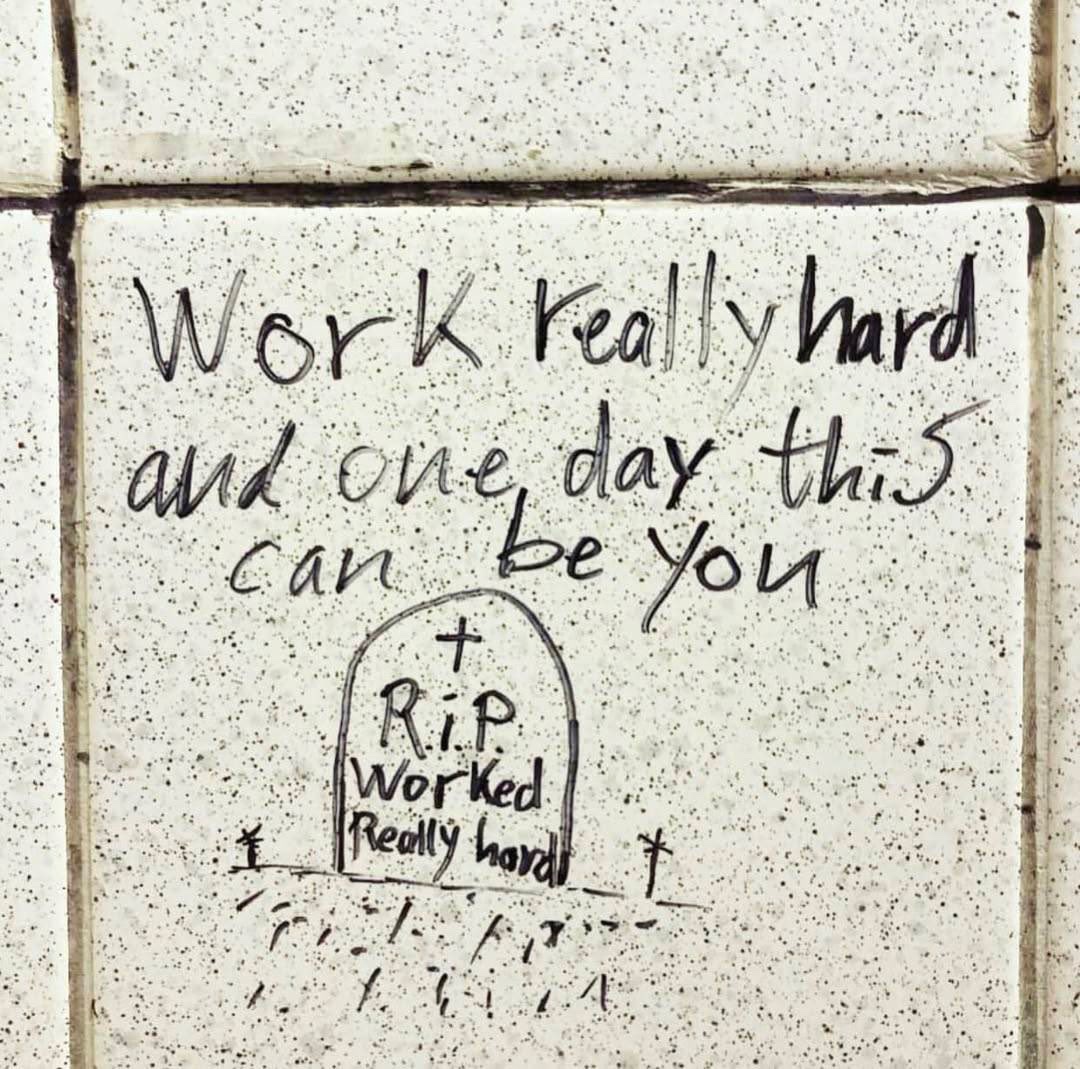 Work really hard
and one day this
can be you
R.i.P.
Worked
Really hard